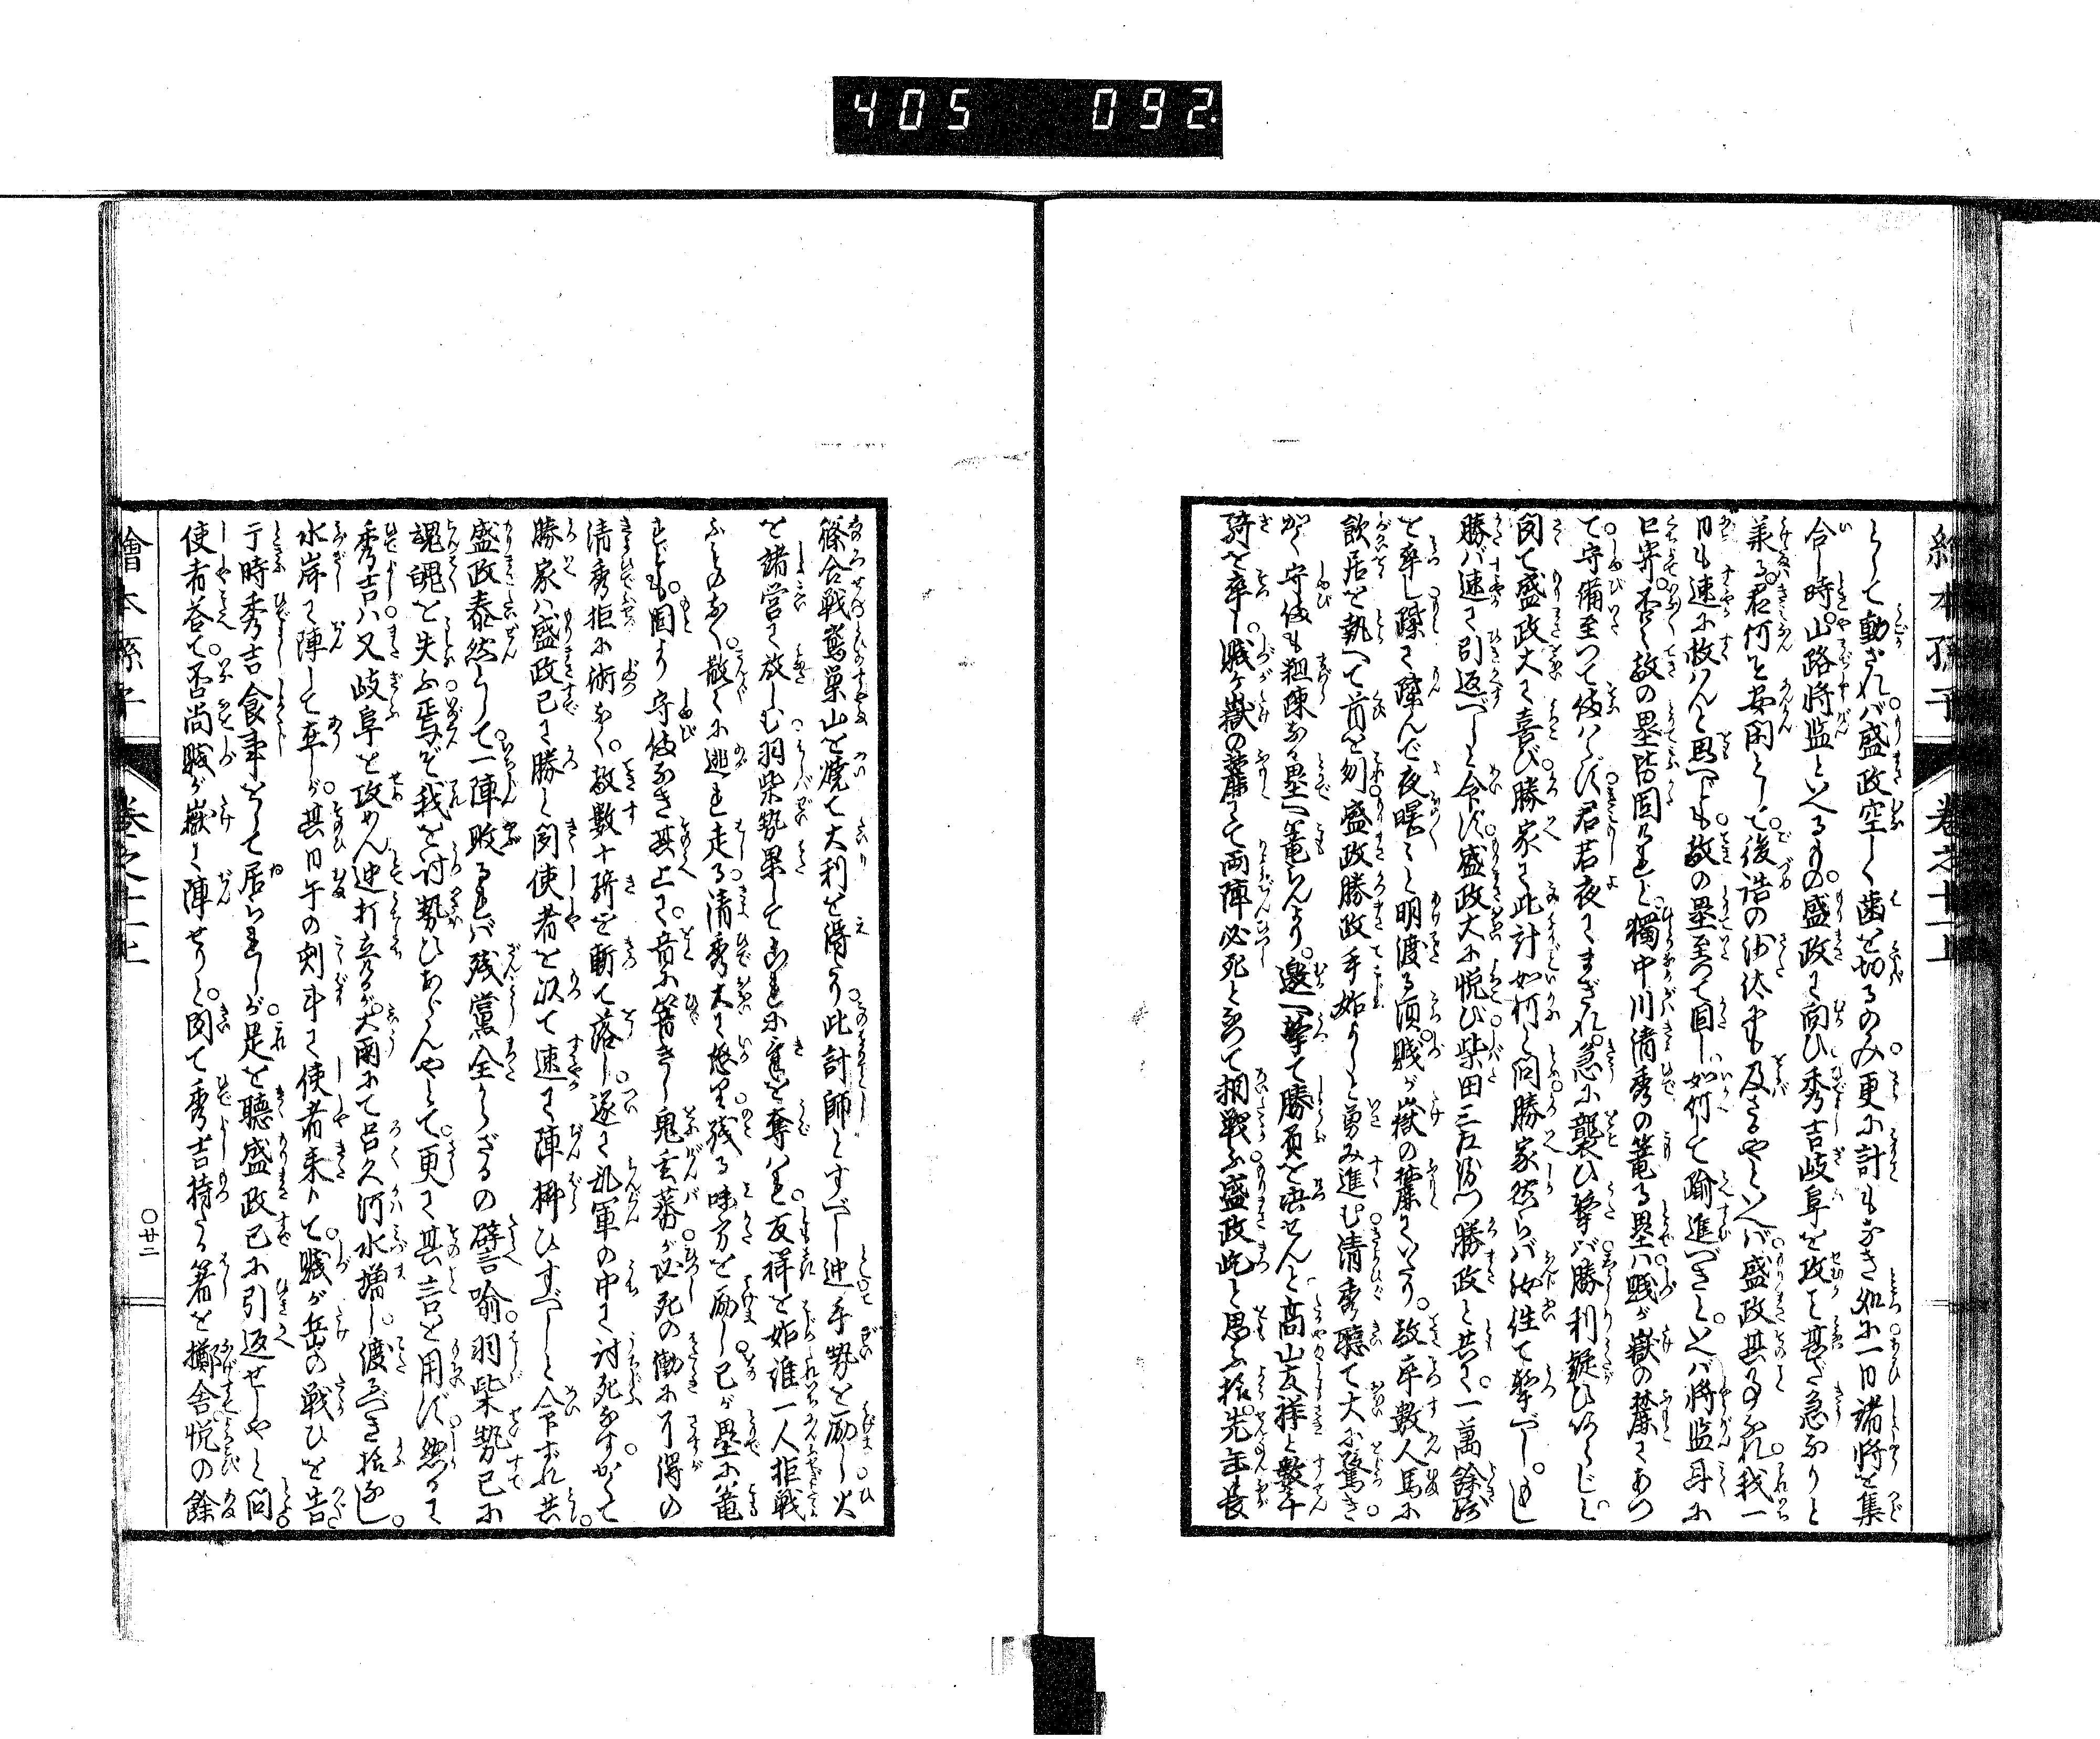 405 092.
繪本孫子 卷之十二上
して動ざれバ盛政空しく歯を切るのみ更に計もなき処に一日諸将を集
合し時山路将監といへるもの盛政に向ひ秀吉岐阜を攻る甚だ急なりと
承る君何を安閑として後詰の沙汰にも及さるやといへバ盛政其事なれ我一
日も速に救はんと思へども敵の塁至つて固し如何して踰進べきといバ将監耳に
口寄否く敵の塁皆固けれど獨中川清秀の篭る塁ハ賤が嶽の麓にあつ
て守備至つて伎ハず君若夜にまぎれ急に襲ひ撃バ勝利疑ひあらじと
聞て盛政大に喜び勝家に此計如何と問勝家然らバ汝往て撃べし
勝バ速に引返べしと令ず盛政大に悦び柴田三左衛門勝政と共に一萬餘騎
を率し蹀に蹀んで夜暁と明渡る頃賤が嶽の麓にいたり敵卒數人馬に
飲居を執へて首を刎盛政勝政手始よしと勇み進む清秀聴て大に驚き
かく守伎も粗陳なる塁へ篭らんより邀へ撃て勝負を决せんと高山友祥と數千
騎を率し賤ヶ嶽の麓にて両陣必死となつて相戦ふ盛政此と思ふ折先年長
篠合戦鳶巣山を焼て大利を得たり此計師とすべし迚手勢を励し火
を諸営に放しむ羽柴勢果して是に氣を奪はれ友祥を始誰一人拒戦
ふものなく散々に逃走る清秀大に怒り残る味方を励し己が塁に篭
れども固より守伎なき其上に音に響きし鬼玄蕃が必死の働に可得の
清秀拒に術なく敵數十騎を斬て落し遂に乱軍の中に討死なすかくて
勝家ハ盛政已に勝と聞使者を以て速に陣拂ひすべしと令すれ共
盛政泰然として一陣敗るれバ残黨全からざるの譬喩羽柴勢已に
魂魄を失ふ焉ぞ我を討勢ひあらんやとて更に其言を用ず然るに
秀吉ハ又岐阜を攻めん迚打立るが大雨にて呂久河水増し渡るべき括なし
水岸に陣して在しが其日午の刻斗に使者来りて賤が岳の戦ひを告
于時秀吉食事をして居られしが是を聴盛政已に引返せしやと問
使者答て否尚賤が嶽に陣せりと聞て秀吉持たる箸を擲舎悦の餘
繪本孫子 卷之十二上 〇廿二